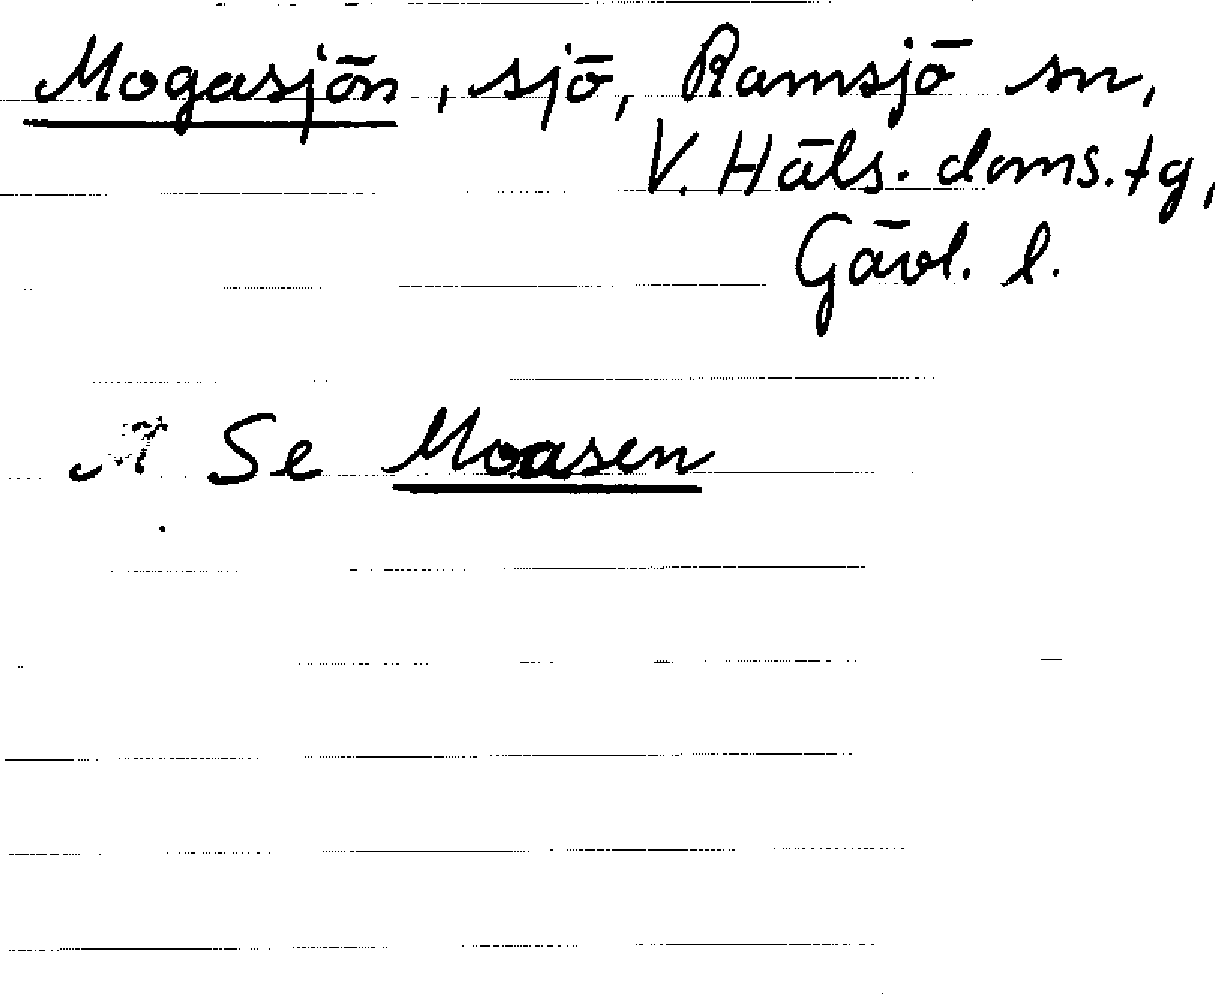 Mogasjön, sjö, Ramsjö sn,
V. Häls. doms.tg,
Gävl. l.
Se Moasen